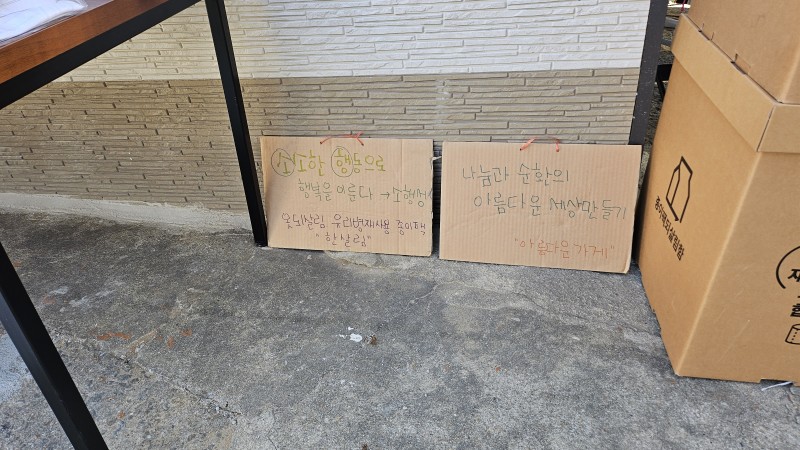 소소한 행동으로
행복을 이룬다 → 소행성
옷되살림 우리병재사용 종이팩
"한살림"
나눔과 순환의
아름다운 세상만들기
"아름다운가게"
종이팩되살림함